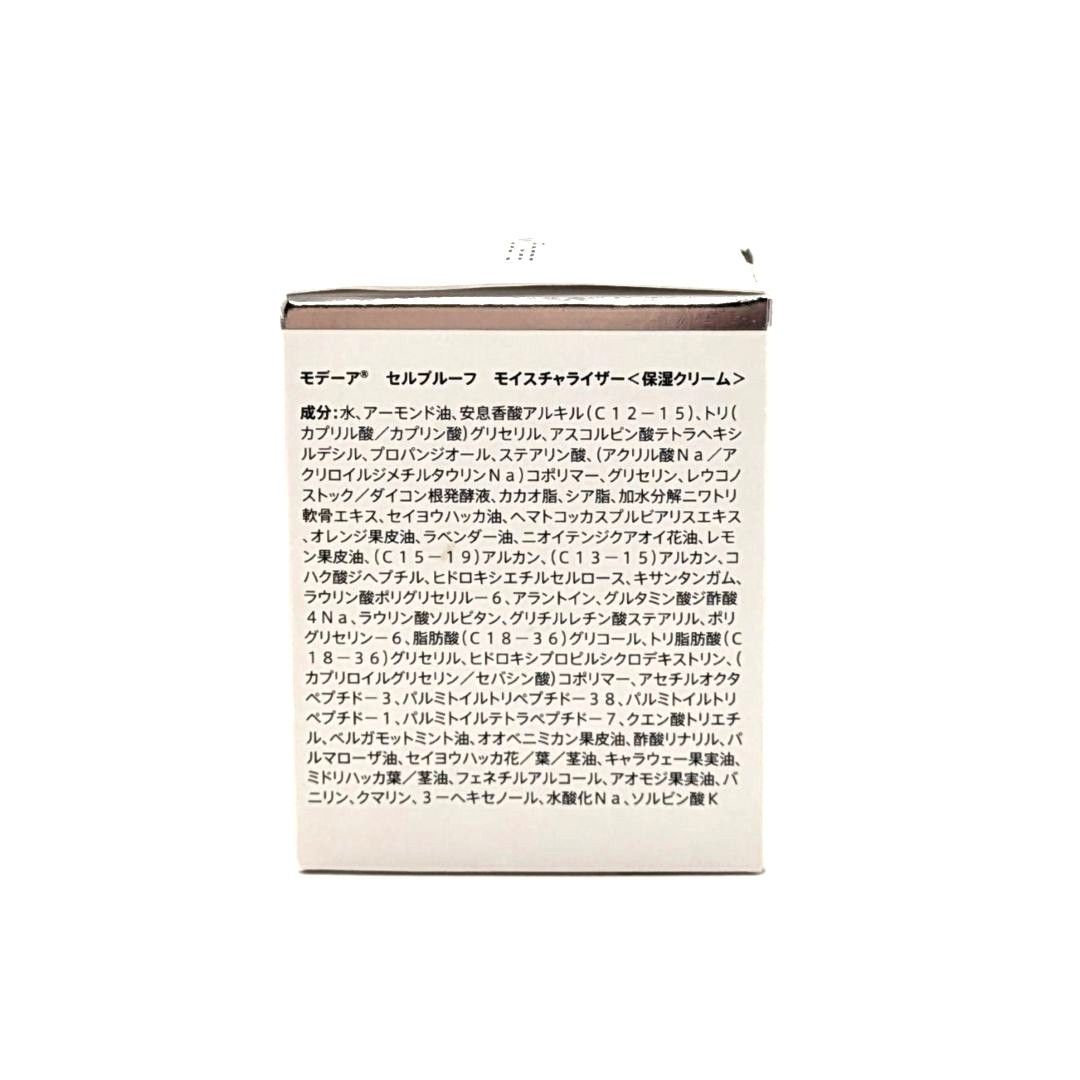 モデーア® セルプルーフ モイスチャライザー<保湿クリーム>
成分:水、アーモンド油、安息香酸アルキル(C12-15)、トリ(
カプリル酸/カプリン酸)グリセリル、アスコルビン酸テトラヘキシ
ルデシル、プロパンジオール、ステアリン酸、(アクリル酸Na/ア
クリロイルジメチルタウリンNa)コポリマー、グリセリン、レウコノ
ストック/ダイコン根発酵液、カカオ脂、シア脂、加水分解ニワトリ
軟骨エキス、セイヨウハッカ油、ヘマトコッカスプルビアリスエキス
、オレンジ果皮油、ラベンダー油、ニオイテンジクアオイ花油、レモ
ン果皮油、(C15-19)アルカン、(C13-15)アルカン、コ
ハク酸ジヘプチル、ヒドロキシエチルセルロース、キサンタンガム、
ラウリン酸ポリグリセリル-6、アラントイン、グルタミン酸ジ酢酸
4Na、ラウリン酸ソルビタン、グリチルレチン酸ステアリル、ポリ
グリセリン-6、脂肪酸(C18-36)グリコール、トリ脂肪酸(C
18-36)グリセリル、ヒドロキシプロピルシクロデキストリン、(
カプリロイルグリセリン/セバシン酸)コポリマー、アセチルオクタ
ペプチド-3、パルミトイルトリペプチド-38、パルミトイルトリ
ペプチド-1、パルミトイルテトラペプチド-7、クエン酸トリエチ
ル、ベルガモットミント油、オオベニミカン果皮油、酢酸リナリル、パ
ルマローザ油、セイヨウハッカ花/葉/茎油、キャラウェー果実油、
ミドリハッカ葉/茎油、フェネチルアルコール、アオモジ果実油、バ
ニリン、クマリン、3-ヘキセノール、水酸化Na、ソルビン酸K